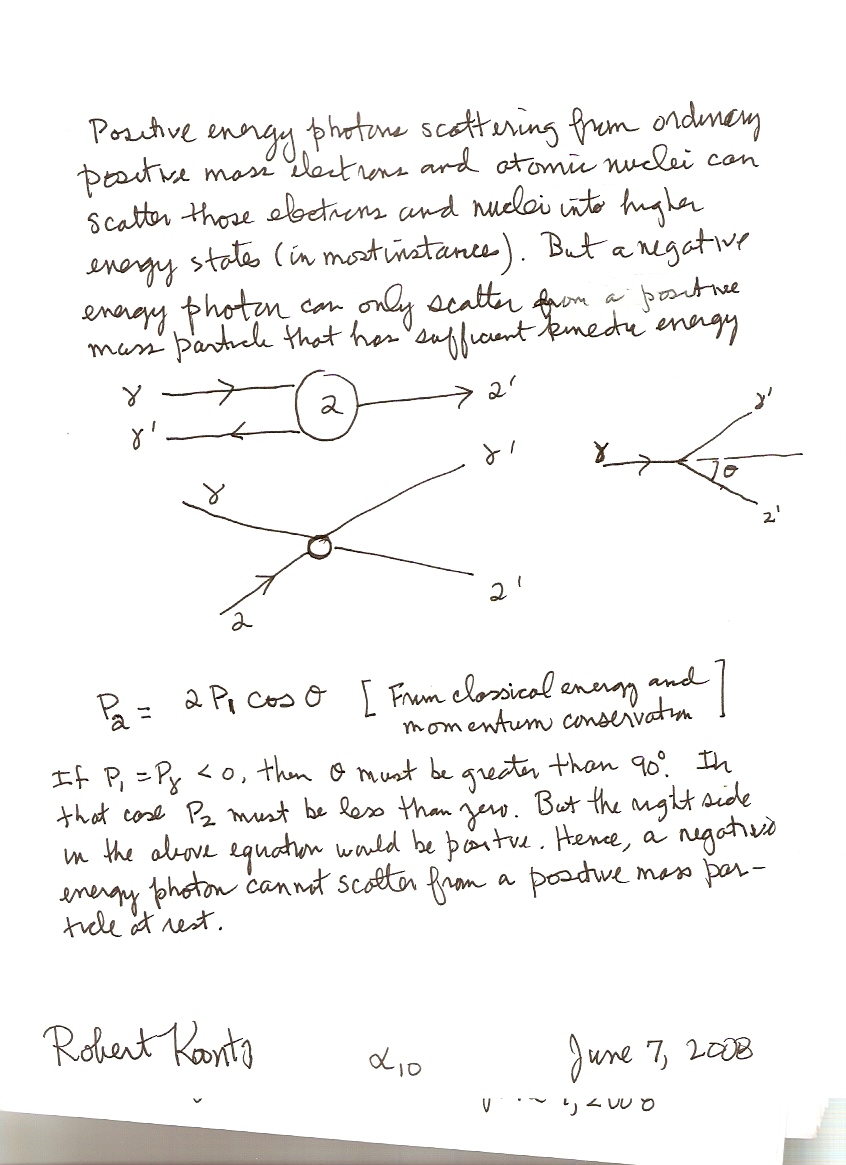 Positive energy photons scattering from ordinary
positive mass electrons and atomic nuclei can
scatter those electrons and nuclei into higher
energy states (in most instances). But a negative
energy photon can only scatter from a positive
mass particle that has sufficient kinetic energy
γ 2 2'
γ'
γ'
γ γ'
γ θ
2'
2 2'
P₂ = 2 P₁ cos θ [From classical energy and
momentum conservation]
If P₁ = Pγ < 0, then θ must be greater than 90°. In
that case P₂ must be less than zero. But the right side
in the above equation would be positve. Hence, a negative
energy photon cannot scatter from a positive mass par-
ticle at rest.
Robert Koontz α₁₀ June 7, 2008
, 2008